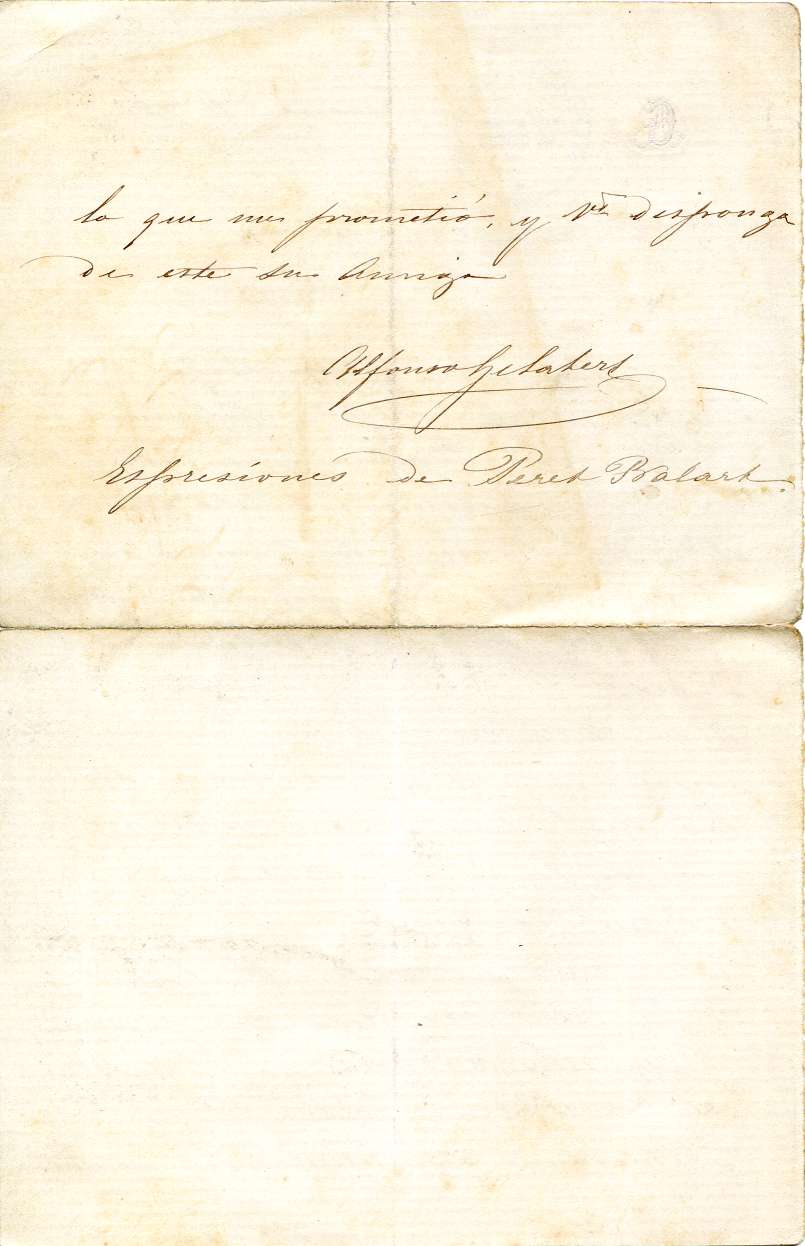 lo que me prometió, y Vd disponga
de este su Amigo
Alfonso Gelabert
Espresiones de Peret Balart.